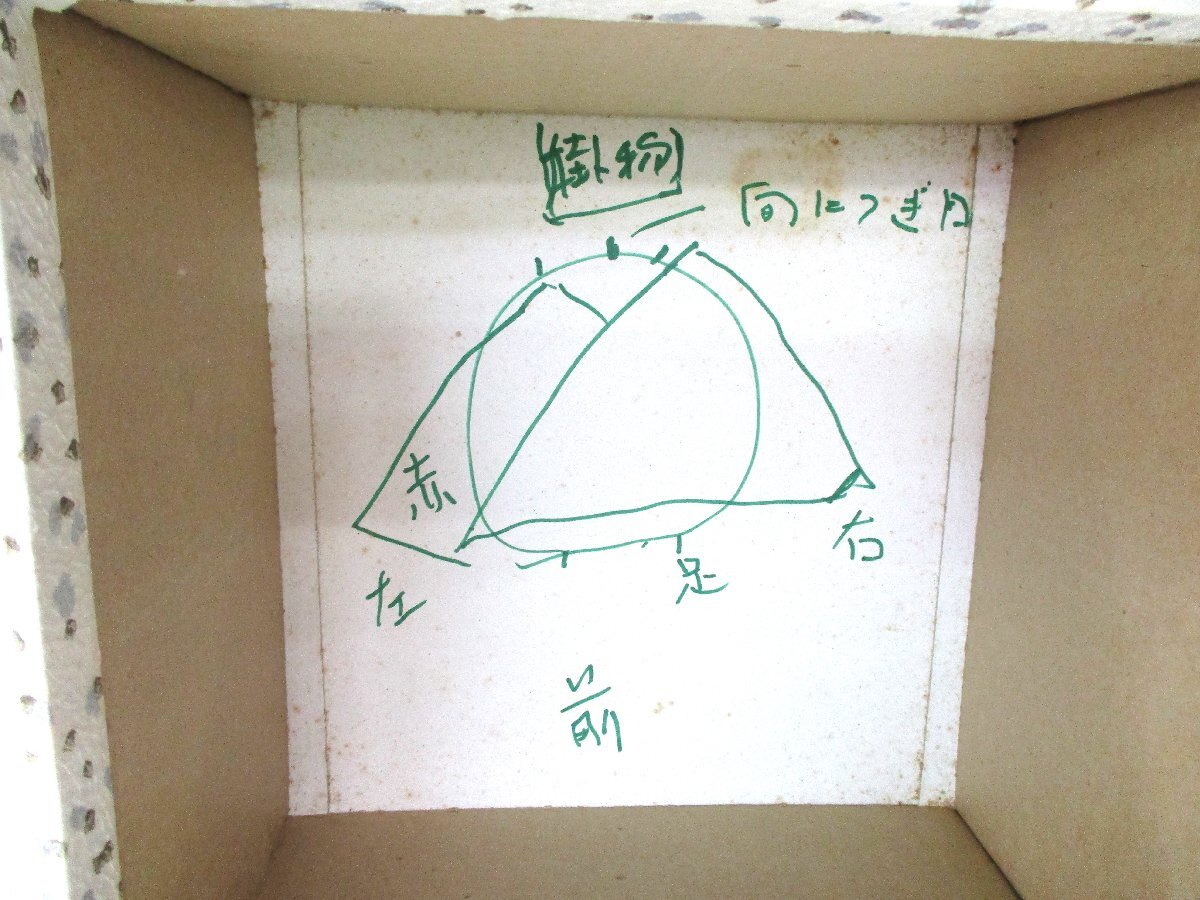 掛物
向につぎ目
赤
左
足
右
前